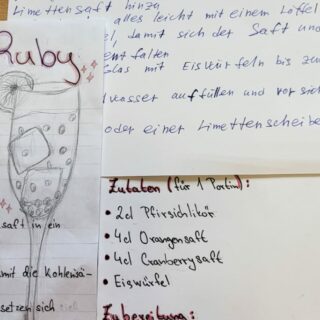 Limettensaft hinzu
alles leicht mit einem Löffel
, damit sich der Saft und
entfalten
Glas mit Eiswürfeln bis zur
wasser auffüllen und vorsich
oder einer Limettenscheibe
Ruby
saft in ein
mit die Kohlensä-
setzen sich
Zutaten (für 1 Portin):
• 2cl Pfirsichlikör
• 4cl Orangensaft
• 4cl Cranberrysaft
• Eiswürfel
Zubereitung: